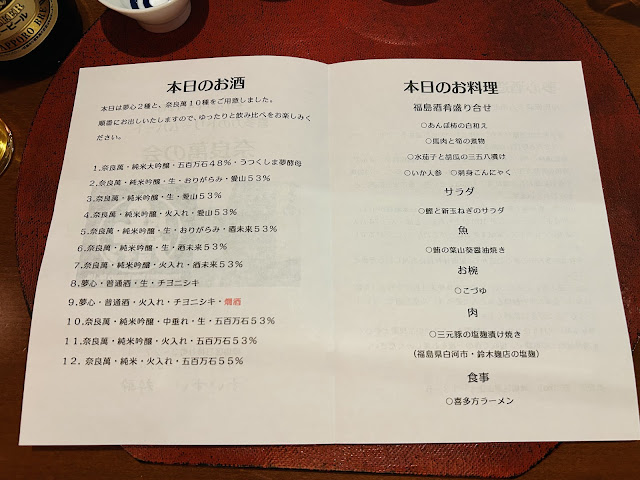 本日のお酒
本日は夢心2種と、奈良萬10種をご用意しました。
順番にお出しいたしますので、ゆったりと飲み比べをお楽しみく
ださい。
1.奈良萬・純米大吟醸・五百万石48%・うつくしま夢酵母
2.奈良萬・純米吟醸・生・おりがらみ・愛山53%
3.奈良萬・純米吟醸・生・愛山53%
4.奈良萬・純米吟醸・火入れ・愛山53%
5.奈良萬・純米吟醸・生・おりがらみ・酒未来53%
6.奈良萬・純米吟醸・生・酒未来53%
7.奈良萬・純米吟醸・火入れ・酒未来53%
8.夢心・普通酒・生・チヨニシキ
9.夢心・普通酒・火入れ・チヨニシキ・燗酒
10.奈良萬・純米吟醸・中垂れ・生・五百万石53%
11.奈良萬・純米吟醸・火入れ・五百万石53%
12. 奈良萬・純米・火入れ・五百万石55%
本日のお料理
福島酒肴盛り合せ
○あんぽ柿の白和え
○馬肉と筍の煮物
○水茄子と胡瓜の三五八漬け
○いか人参 ○刺身こんにゃく
サラダ
○鰹と新玉ねぎのサラダ
魚
の葉山葵醤油焼き
お椀
○こづゆ
肉
○三元豚の塩麹漬け焼き
(福島県白河市・鈴木麹店の塩麹)
食事
○喜多方ラーメン
SAPPORO BREW